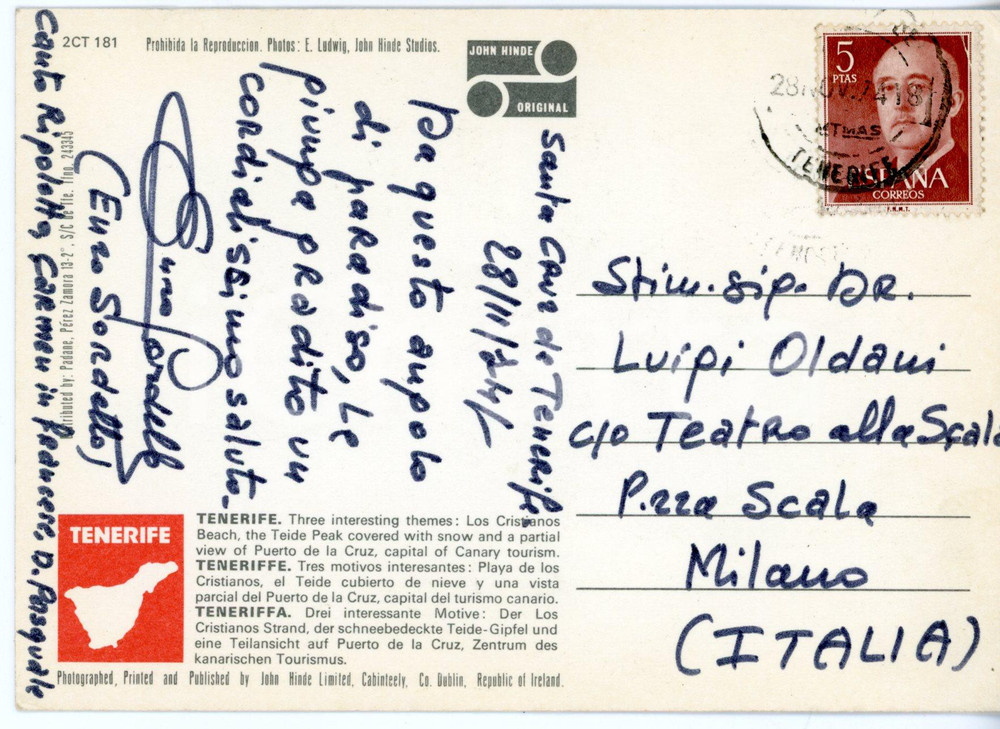 2CT 181
Prohibida la Reproduccion. Photos: E. Ludwig, John Hinde Studios.
JOHN HINDE
ORIGINAL
5
PTAS
ESPAÑA
CORREOS
F.N.M.T.
28 NOV. 74 18
TENERIFE
Santa Cruz de Tenerife
28/11/74/
Da questo angolo
di paradiso, Le
giunga gradito un
cordialissimo saluto.
Enzo Sordello
(Enzo Sordello)
Canto Rigoletto, Carmen in francese, D. Pasquale
Stim. sig. DR.
Luigi Oldani
c/o Teatro alla Scala
P.zza Scala
Milano
(ITALIA)
Distributed by: Padane, Pérez Zamora 13-2°, S/C de Tfe. Tfno. 243345
TENERIFE
TENERIFE. Three interesting themes: Los Cristianos
Beach, the Teide Peak covered with snow and a partial
view of Puerto de la Cruz, capital of Canary tourism.
TENERIFFE. Tres motivos interesantes: Playa de los
Cristianos, el Teide cubierto de nieve y una vista
parcial del Puerto de la Cruz, capital del turismo canario.
TENERIFFA. Drei interessante Motive: Der Los
Cristianos Strand, der schneebedeckte Teide-Gipfel und
eine Teilansicht auf Puerto de la Cruz, Zentrum des
kanarischen Tourismus.
Photographed, Printed and Published by John Hinde Limited, Cabinteely, Co. Dublin, Republic of Ireland.